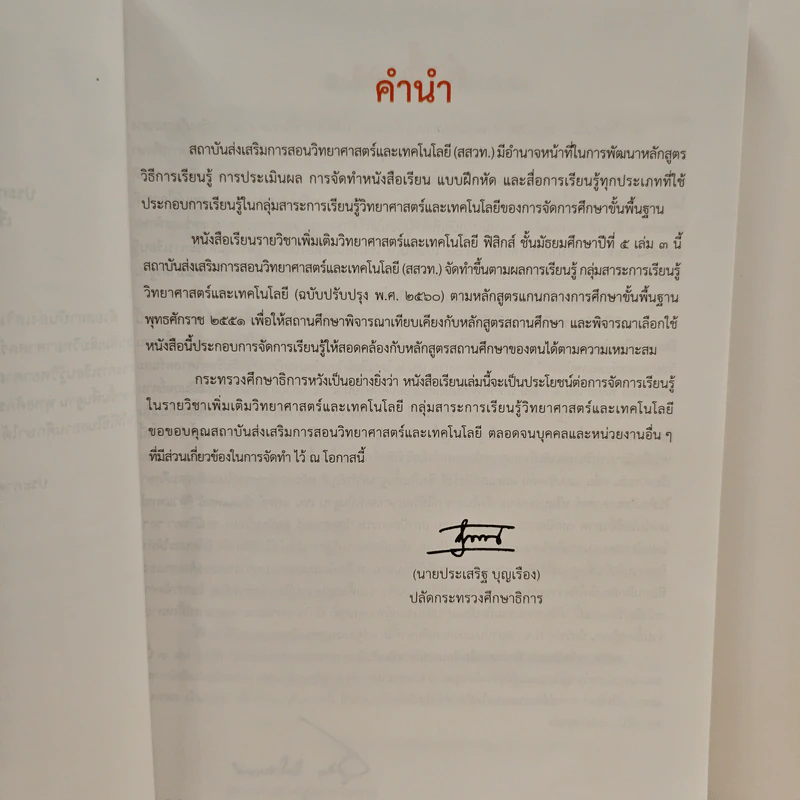 คำนำ
สถาบันส่งเสริมการสอนวิทยาศาสตร์และเทคโนโลยี (สสวท.) มีอำนาจหน้าที่ในการพัฒนาหลักสูตร
วิธีการเรียนรู้ การประเมินผล การจัดทำหนังสือเรียน แบบฝึกหัด และสื่อการเรียนรู้ทุกประเภทที่ใช้
ประกอบการเรียนรู้ในกลุ่มสาระการเรียนรู้วิทยาศาสตร์และเทคโนโลยีของการจัดการศึกษาขั้นพื้นฐาน
หนังสือเรียนรายวิชาเพิ่มเติมวิทยาศาสตร์และเทคโนโลยี ฟิสิกส์ ชั้นมัธยมศึกษาปีที่ ๕ เล่ม ๓ นี้
สถาบันส่งเสริมการสอนวิทยาศาสตร์และเทคโนโลยี (สสวท.) จัดทำขึ้นตามผลการเรียนรู้ กลุ่มสาระการเรียนรู้
วิทยาศาสตร์และเทคโนโลยี (ฉบับปรับปรุง พ.ศ. ๒๕๖๐) ตามหลักสูตรแกนกลางการศึกษาขั้นพื้นฐาน
พุทธศักราช ๒๕๕๑ เพื่อให้สถานศึกษาพิจารณาเทียบเคียงกับหลักสูตรสถานศึกษา และพิจารณาเลือกใช้
หนังสือนี้ประกอบการจัดการเรียนรู้ให้สอดคล้องกับหลักสูตรสถานศึกษาของตนได้ตามความเหมาะสม
กระทรวงศึกษาธิการหวังเป็นอย่างยิ่งว่า หนังสือเรียนเล่มนี้จะเป็นประโยชน์ต่อการจัดการเรียนรู้
ในรายวิชาเพิ่มเติมวิทยาศาสตร์และเทคโนโลยี กลุ่มสาระการเรียนรู้วิทยาศาสตร์และเทคโนโลยี
ขอขอบคุณสถาบันส่งเสริมการสอนวิทยาศาสตร์และเทคโนโลยี ตลอดจนบุคคลและหน่วยงานอื่น ๆ
ที่มีส่วนเกี่ยวข้องในการจัดทำ ไว้ ณ โอกาสนี้
(นายประเสริฐ บุญเรือง)
ปลัดกระทรวงศึกษาธิการ